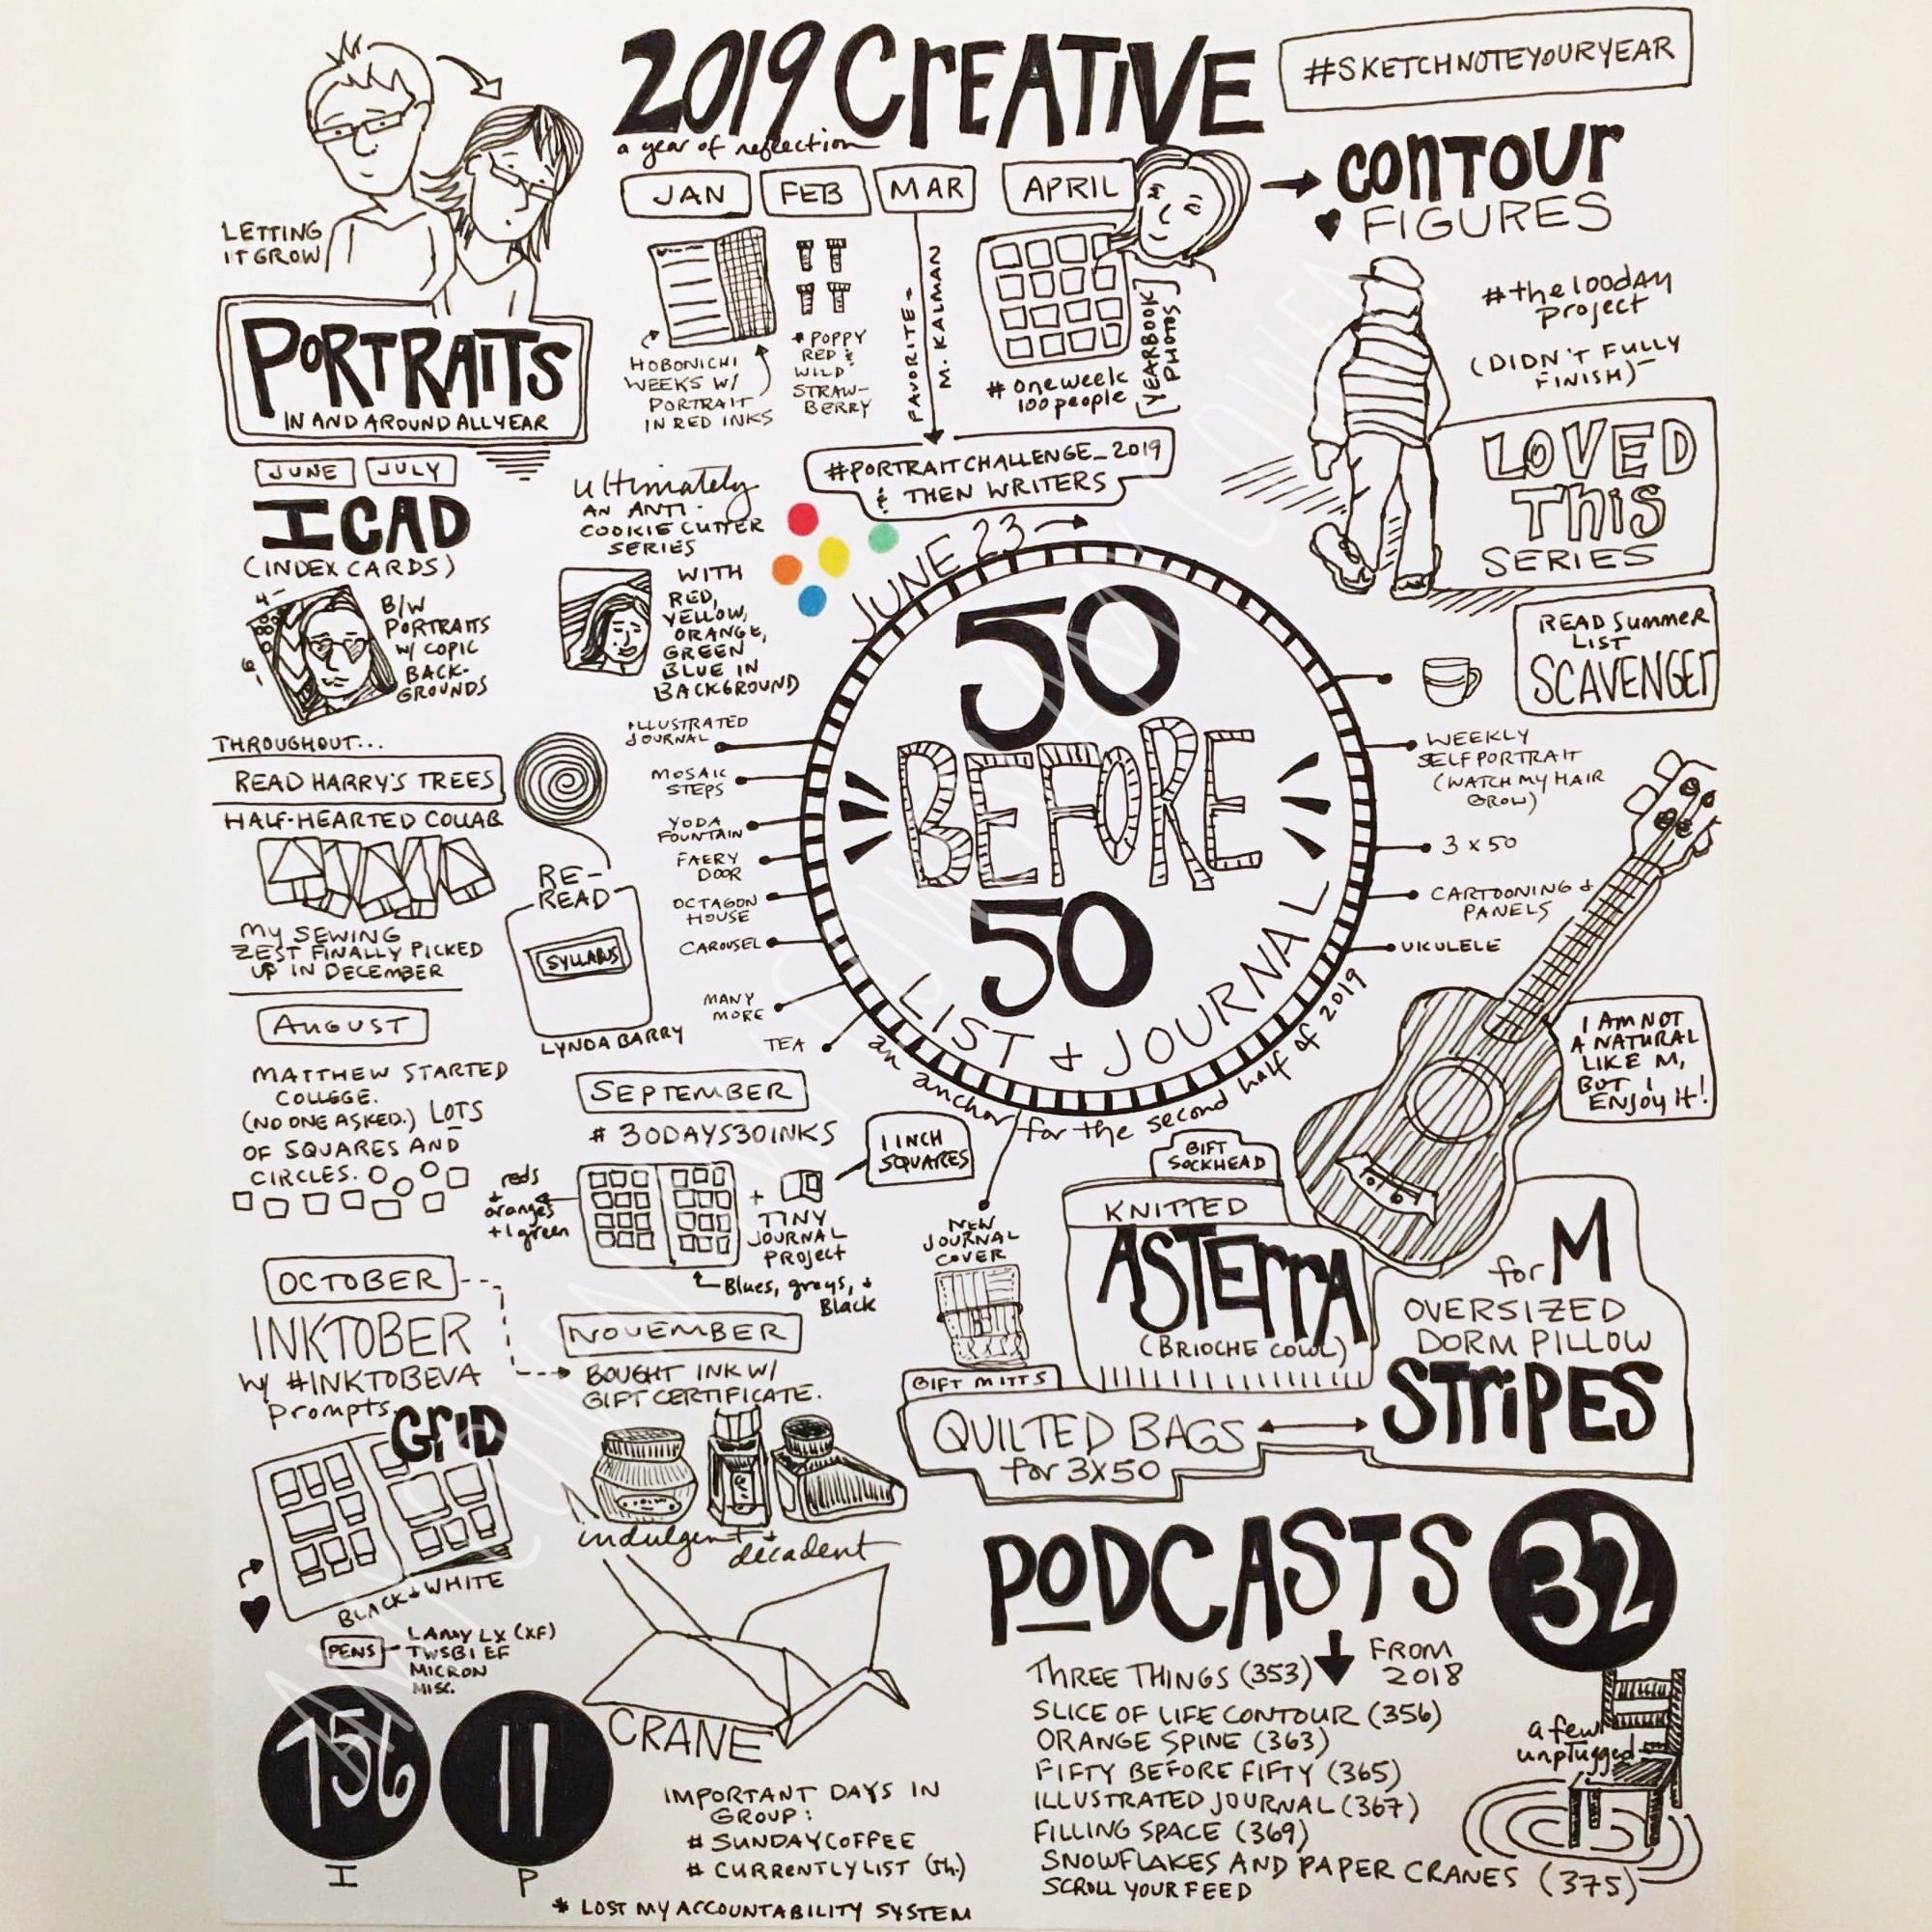 2019 CREATIVE
a year of reflection
#SKETCHNOTEYOURYEAR
LETTING
IT GROW
PORTRAITS
IN AND AROUND ALL YEAR
JAN
FEB
MAR
APRIL
HOBONICHI
WEEKS W/
PORTRAIT
IN RED INKS
* POPPY
RED &
WILD
STRAW-
BERRY
FAVORITE -
M. KALMAN
# oneweek
100people
[YEARBOOK
PHOTOS]
#PORTRAITCHALLENGE_2019
& THEN WRITERS
CONTOUR
FIGURES
#the100day
project
(DIDN'T FULLY
FINISH)
LOVED
THIS
SERIES
READ SUMMER
LIST
SCAVENGER
JUNE
JULY
ICAD
(INDEX CARDS)
4
6
B/W
PORTRAITS
W/ COPIC
BACK-
GROUNDS
ultimately
AN ANTI-
COOKIE CUTTER
SERIES
WITH
RED,
YELLOW,
ORANGE,
GREEN
BLUE IN
BACKGROUND
JUNE 23
50
BEFORE
50
LIST + JOURNAL
an anchor for the second half of 2019
ILLUSTRATED
JOURNAL
MOSAIC
STEPS
YODA
FOUNTAIN
FAERY
DOOR
OCTAGON
HOUSE
CAROUSEL
MANY
MORE
TEA
WEEKLY
SELF PORTRAIT
(WATCH MY HAIR
GROW)
3 X 50
CARTOONING +
PANELS
UKULELE
I AM NOT
A NATURAL
LIKE M,
BUT I
ENJOY IT!
THROUGHOUT...
READ HARRY'S TREES
HALF-HEARTED COLLAB
MY SEWING
ZEST FINALLY PICKED
UP IN DECEMBER
RE-
READ
SYLLABUS
LYNDA BARRY
AUGUST
MATTHEW STARTED
COLLEGE.
(NO ONE ASKED.) LOTS
OF SQUARES AND
CIRCLES.
SEPTEMBER
# 30DAYS30INKS
1 INCH
SQUARES
reds
+
oranges
+ 1 green
+
TINY
JOURNAL
PROJECT
Blues, grays, +
Black
NEW
JOURNAL
COVER
GIFT
SOCKHEAD
KNITTED
ASTERRA
(BRIOCHE COWL)
for M
OVERSIZED
DORM PILLOW
STRIPES
GIFT MITTS
QUILTED BAGS
for 3X50
OCTOBER
INKTOBER
W/ #INKTOBEVA
Prompts.
GRID
BLACK + WHITE
PENS
LAMY LX (XF)
TWSBI EF
MICRON
MISC.
NOVEMBER
BOUGHT INK W/
GIFT CERTIFICATE.
indulgent +
decadent
CRANE
156
I
11
P
IMPORTANT DAYS IN
GROUP:
# SUNDAYCOFFEE
# CURRENTLYLIST (th.)
* LOST MY ACCOUNTABILITY SYSTEM
PODCASTS
32
FROM
2018
THREE THINGS (353)
SLICE OF LIFE CONTOUR (356)
ORANGE SPINE (363)
FIFTY BEFORE FIFTY (365)
ILLUSTRATED JOURNAL (367)
FILLING SPACE (369)
SNOWFLAKES AND PAPER CRANES (375)
SCROLL YOUR FEED
a few
unplugged